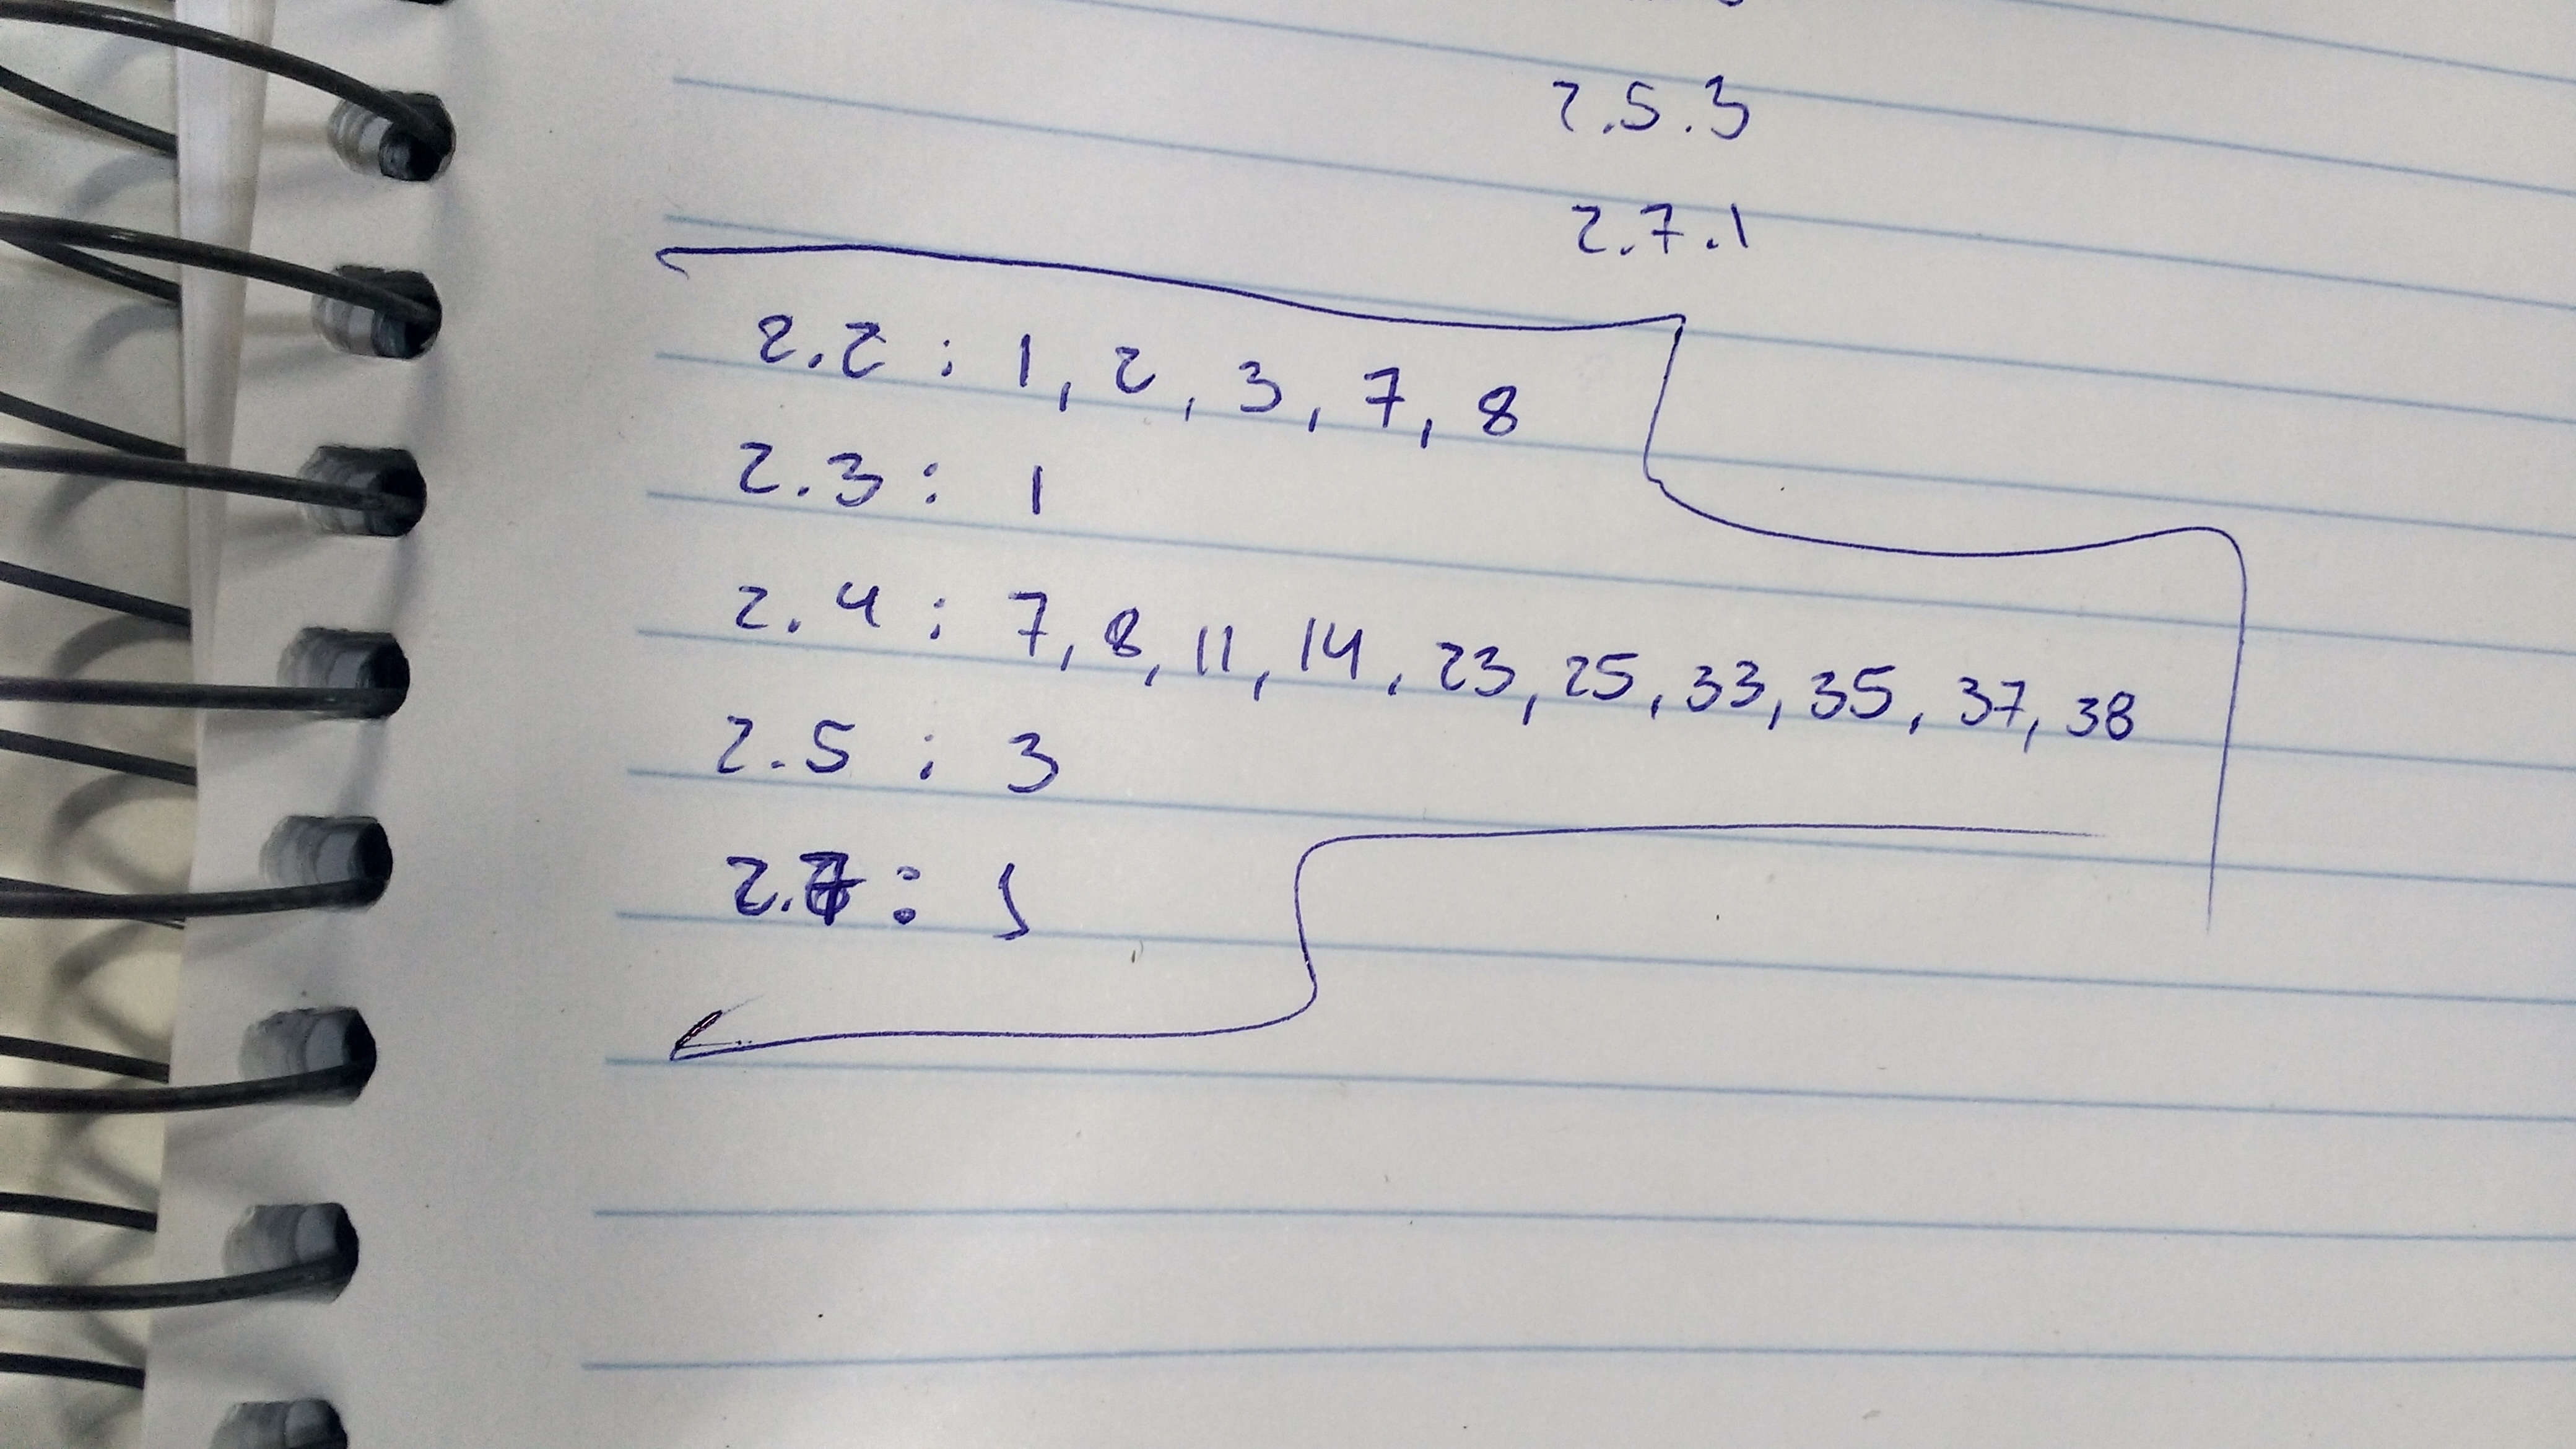 2.5.3
2.7.1
2.2 : 1, 2, 3, 7, 8
2.3 : 1
2.4 : 7, 8, 11, 14, 23, 25, 33, 35, 37, 38
2.5 : 3
2.7 : 1